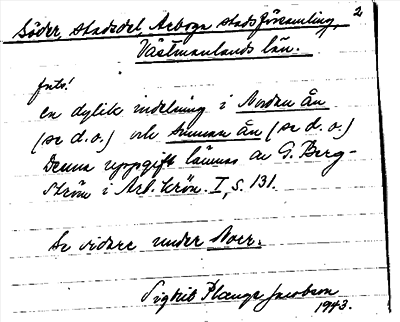 2
Söder, stadsdel, Arboga stadsförsamling,
Västmanlands län.
en dylik indelning i Nordan ån
(se d.o.) och Sunnan ån (se d.o.)
Denna uppgift lämnas av G. Berg-
ström i Arb. krön. I, s. 131.
Se vidare under Norr.
Sigrid Jacobson
1943.